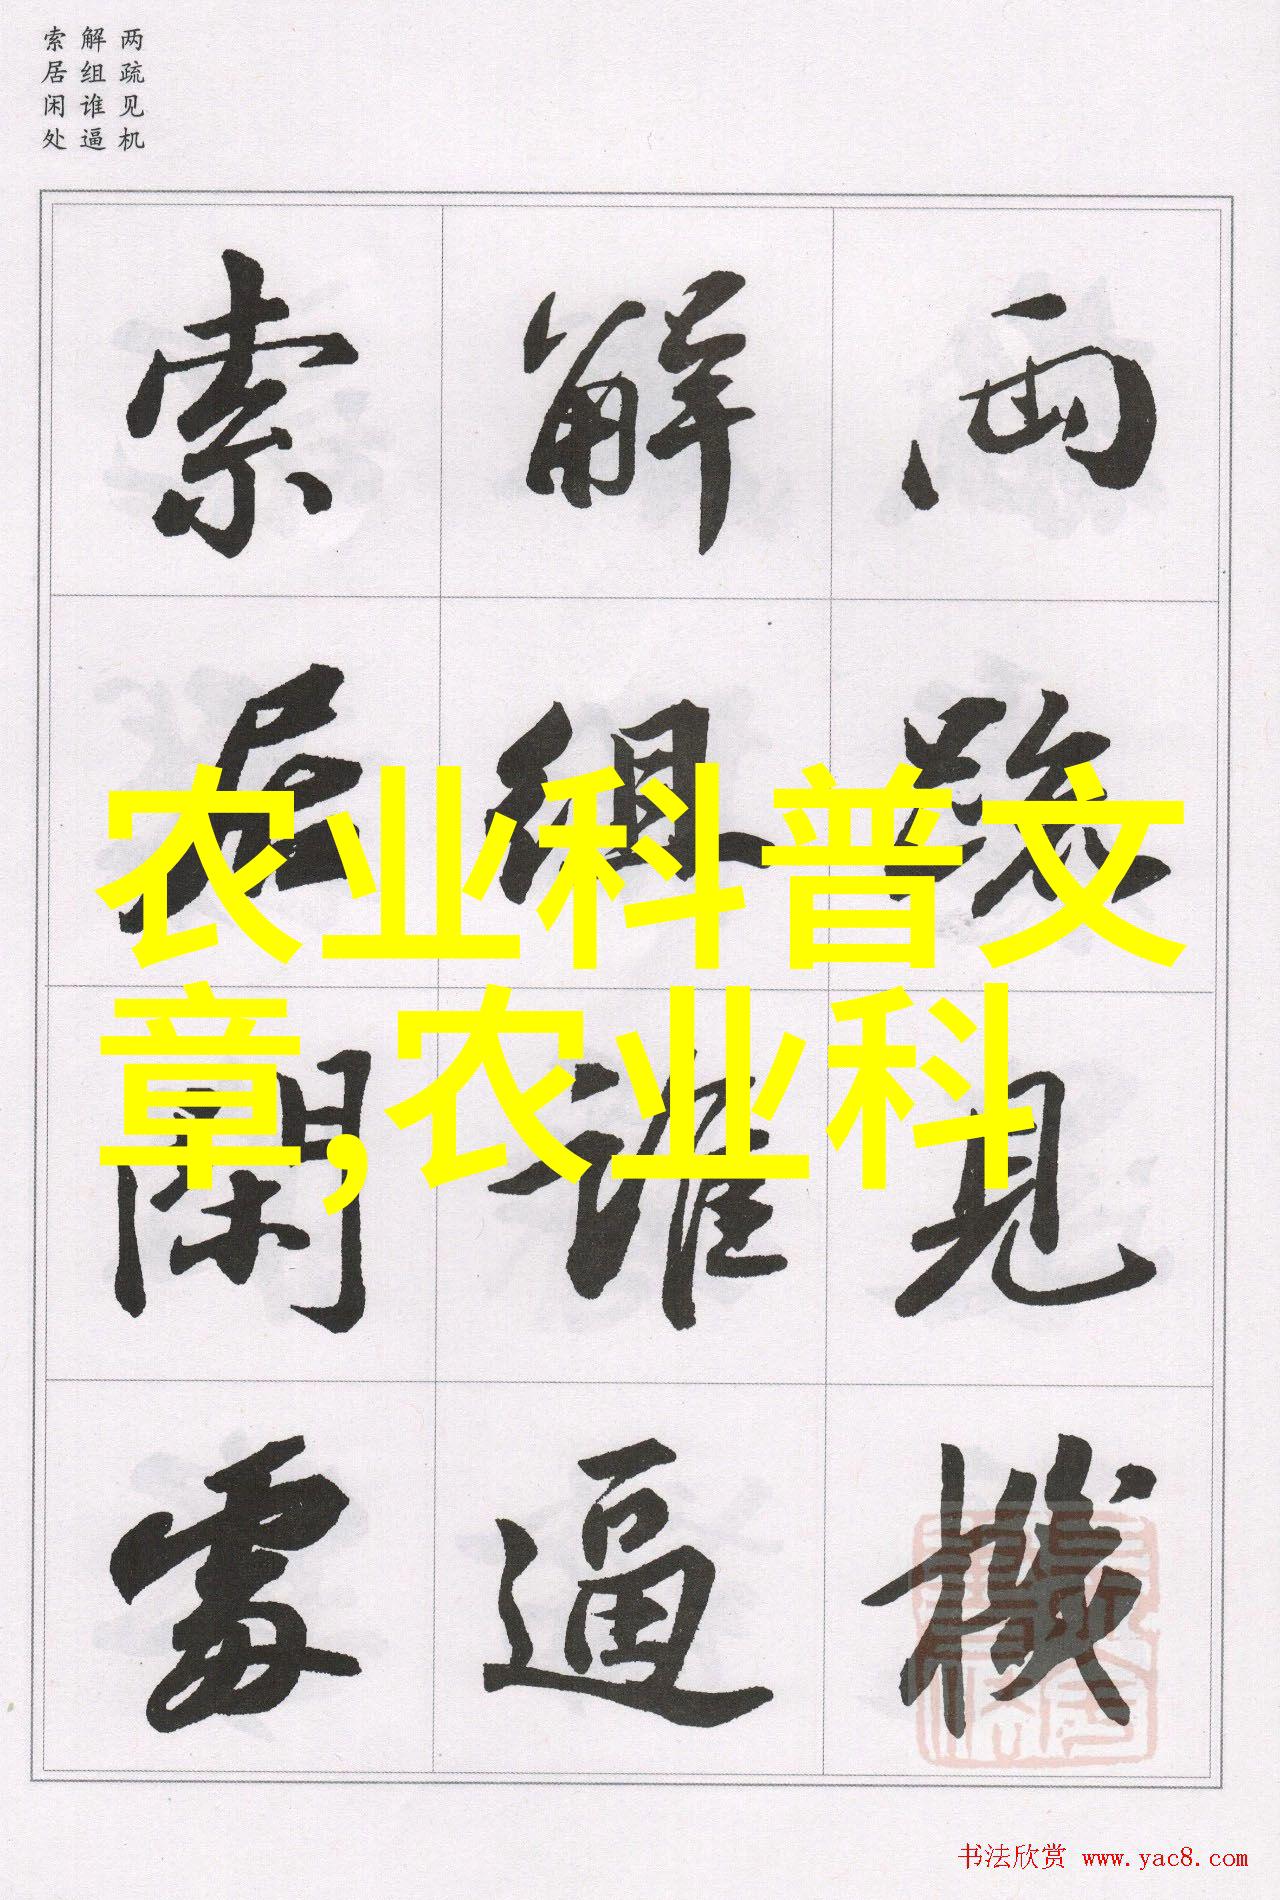 两疏见机
解组谁逼
索居闲处
兩疏見機
解組誰逼
索居閑處
农业科普文
章,农业科
书法欣赏 www.yac8.com